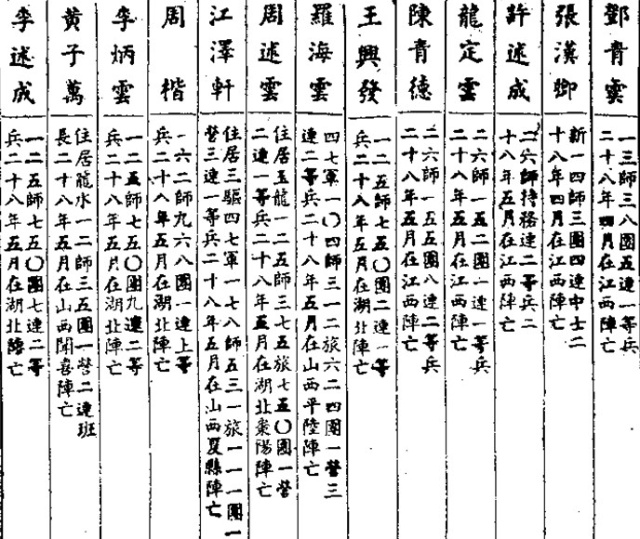 鄧青雲
一三師三八團五連一等兵
二十八年四月在江西陣亡
張漢卿
新一四師三團四連中士二
十八年四月在江西陣亡
許述成
二六師特務連二等兵二
十八年五月在江西陣亡
龍定雲
二六師一五二團一連一等兵
二十八年五月在江西陣亡
陳青德
二六師一五五團八連二等兵
二十八年五月在江西陣亡
王興發
一二五師七五〇團二連一等
兵二十八年五月在湖北陣亡
羅海雲
四七軍一〇四師三一二旅六二四團一營三
連二等兵二十八年五月在山西平陸陣亡
周述雲
住居玉龍一二五師三七五旅七五〇團一營
二連一等兵二十八年五月在湖北棗陽陣亡
江澤軒
住居三驅四七軍一七八師五三一旅一一一團一
營三連一等兵二十八年五月在山西夏縣陣亡
周楷
一六二師九六八團一連上等
兵二十八年五月在湖北陣亡
李炳雲
一二五師七五〇團九連二等
兵二十八年五月在湖北陣亡
黃子萬
住居龍水一二師三五團一營二連班
長二十八年五月在山西聞喜陣亡
李述成
一二五師七五〇團七連二等
兵二十八年五月在湖北陣亡